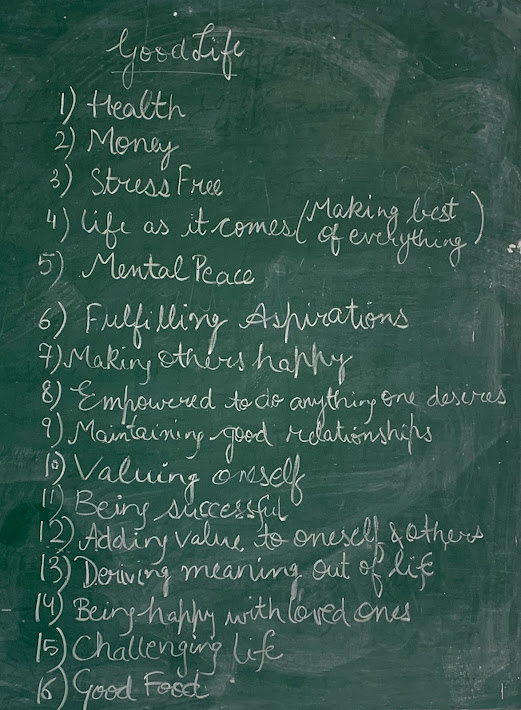 Good Life
1) Health
2) Money
3) Stress Free
4) Life as it comes (Making best of everything)
5) Mental Peace
6) Fulfilling Aspirations
7) Making others happy
8) Empowered to do anything one desires
9) Maintaining good relationships
10) Valuing oneself
11) Being successful
12) Adding value to oneself & others
13) Deriving meaning out of life
14) Being happy with loved ones
15) Challenging life
16) Good Food